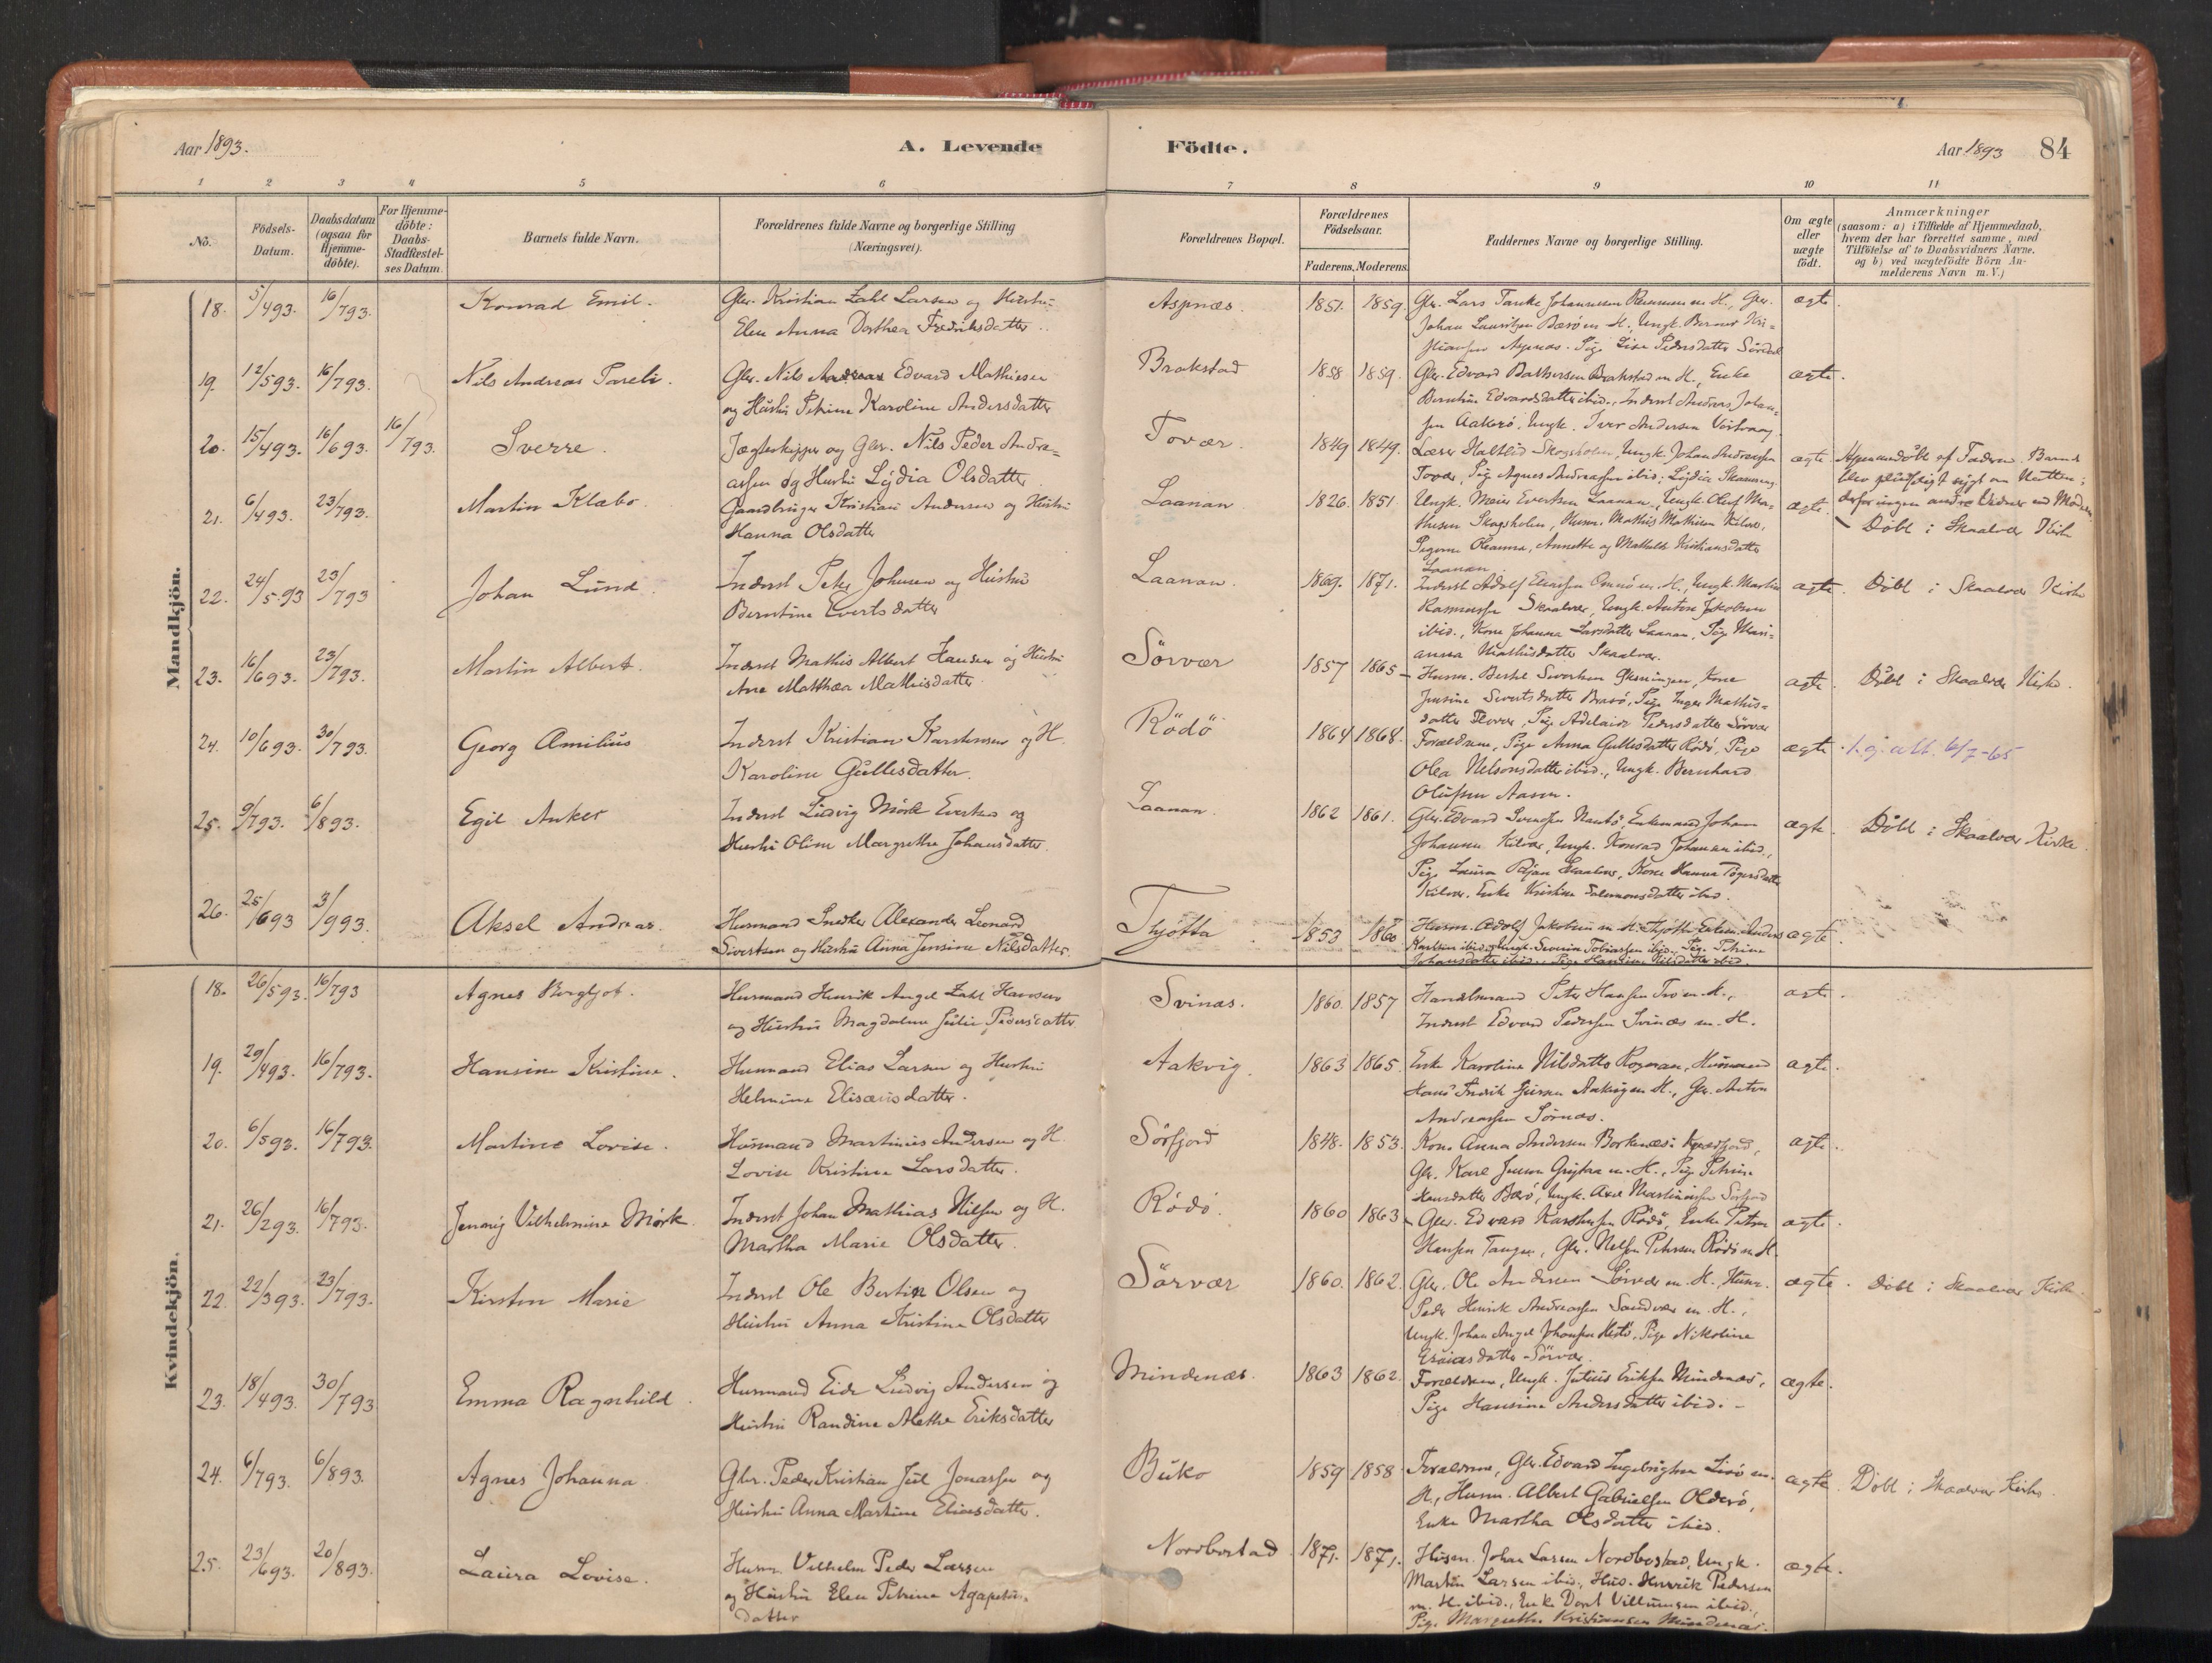 Aar 1893.
A. Levende
Födte.
Aar 1893
84
1 2 3 4 5 6 7 8 9 10 11
No.
Födsels-
Datum.
Daabsdatum
(ogsaa for
Hjemme-
döbte).
For Hjemme-
döbte:
Daabs-
Stadfæstel-
ses Datum.
Barnets fulde Navn.
Forældrenes fulde Navne og borgerlige Stilling
(Næringsvei).
Forældrenes Bopæl.
Forældrenes
Födselsaar.
Faderens. Moderens.
Faddernes Navne og borgerlige Stilling.
Om ægte
eller
uægte
födt.
Anmærkninger
(saasom: a) i Tilfælde af Hjemmedaab,
hvem der har forrettet samme, med
Tilföielse af to Daabsvidners Navne.
og b) ved uægtefödte Börn An-
melderens Navn m. V.)
Mandkjön.
18. 5/493. 16/793. Konrad Emil.
Gbr. Kristian Zahl Larsen og Hustru
Elen Anna Dorthea Fredriksdatter.
Aspnæs. 1851. 1859.
Gbr. Lars Tanke Johannesen m. H., Gbr.
Johan Lauritzen Bærö m. H., Ungk. Berner Kri-
stiansen Aspnæs. Pige Lise Pedersdatter
ægte.
19. 12/593. 16/793. Nils Andreas Pareli.
Gbr. Nils Edvard Mathiesen
og Hustru Petrine Karoline Andersdatter
Brakstad 1858 1859.
Gbr. Edvard Baltzersen Brakstad m. H., Enke
Berntine Edvardsdatter ibid., Inderst Andreas Johan-
sen Aakerö, Ungk. Iver Andersen
ægte.
20. 15/493. 16/693. 16/793. Sverre.
Jægteskipper og Gbr. Nils Peder Andre-
assen og Hustru Lydia Olsdatter
Tovær. 1849 1849.
Lærer Halthid Skogsholm, Ungk. Johan Andreassen
Tovær, Pig. Agnes Andreassen ibid., Lydia
ægte
Hjemmedöbt af Faderen. Barnet
blev pludseligt sygt om Natten;
derfor ingen andre Vidner end Moderen
21. 6/493. 23/793. Martin Klæbo.
Gaardbruger Kristian Andersen og Hustru
Hanna Olsdatter
Laanan 1826. 1851.
Ungk. Meier Evertsen Laanan, Ungk. Oluf Ma-
thisen Skogsholm, Husm. Mathis Mathisen Kilvær,
Pigerne Oleanna, Annette og Mathilde Kristiansdatter
Laanan
ægte.
Döbt i Skaalvær Kirke
22. 24/5.93 23/793 Johan Lund.
Inderst Peter Johnsen og Hustru
Berntine Evertsdatter
Laanan. 1869. 1871.
Inderst Adolf Eliassen m. H., Ungk. Martin
Rasmussen Skaalvær, Ungk. Anton Jakobsen
ibid., Kone Johanna Larsdatter Laanan, Pige Mari-
anna Mathisdatter Skaalvær.
ægte. Döbt i Skaalvær Kirke
23. 16/693. 23/793. Martin Albert.
Inderst Mathis Albert Hansen og Hustru
Ane Matthea Mathisdatter.
Sörvær 1857 1865
Husm. Bertel Sivertsen, Kone
Jensine Sivertsdatter Brasö, Pige Inger Mathis-
datter, Pige Adelaide Pedersdatter Sörvær
ægte. Döbt i Skaalvær Kirke.
24. 10/693. 30/793. Georg Æmilius
Inderst Kristian Karstensen og H.
Karoline Gullesdatter.
Rödö 1864 1868.
Forældrene, Pige Anna Gullesdatter Rödö, Pige
Olea Nelsonsdatter ibid., Ungk. Bernhard
Olufsen Aasen.
ægte. f.g. att. 6/7-65
25. 9/793. 6/893. Egil Anker
Inderst Ludvig Mörk Evertsen og
Hustru Oline Margrethe Johansdatter.
Laanan 1862 1861.
Gbr. Edvard Svendsen, Enkemand Johan
Johansen Kilvær, Ungk. Konrad Johansen ibid.,
Pige Laura Skaalvær, Kone Hanna Tögersdatter
Kilvær. Enke Kristine Salomonsdatter ibid.
ægte. Döbt i Skaalvær Kirke
26. 25/693 3/993. Aksel Andreas.
Husmand Snedker Alexander Leonard
Sivertsen og Hustru Anna Jensine Nilsdatter.
Thjötta. 1853 1860
Husm. Adolf Jakobsen m. H. Thjötta, Enkem. Anders
Karlsen ibid., Ungk. Severin Tobiassen ibid., Pige Petrine
Johansdatter ibid., Pige Hansine Nilsdatter ibid.
ægte.
Kvindekjön.
18. 26/593. 16/793 Agnes Bergljot.
Husmand Henrik Angel Zahl Hansen
og Hustru Magdalene Julie Pedersdatter
Svinæs. 1860. 1857
Handelsmand Peter Hansen Tro m. H.,
Inderst Edvard Pedersen Svinæs m. H.
ægte.
19. 29/493. 16/793. Hansine Kristine.
Husmand Elias Larsen og Hustru
Helmine Elisæusdatter.
Aakvig. 1863 1865.
Enke Karoline Nilsdatter, Husmand
Hans Fredrik Aakvig m. H., Gbr. Anton
Andreassen Sörnæs.
ægte.
20. 6/593. 16/793. Martine Lovise.
Husmand Martinus Andersen og H.
Lovise Kristine Larsdatter.
Sörfjord 1848. 1853.
Kone Anna Andersen Borknæs i,
Gbr. Karl Jensen m. H., Pige Petrine
Hansdatter Bærö, Ungk. Axel Martiniussen Sörfjord
ægte.
21. 26/293. 16/793. Jennig Vilhelmine Mörk.
Inderst Johan Mathias Nilsen og H.
Martha Marie Olsdatter.
Rödö. 1860 1863
Gbr. Edvard Karstensen Rödö, Enke Petra
Hansen Tangen, Gbr. Nelson Petersen Rödö m. H.
ægte.
22. 22/393. 23/793. Kirsten Marie
Inderst Ole Bertin Olsen og
Hustru Anna Kristine Olsdatter
Sörvær 1860. 1862.
Gbr. Ole Andersen Sörvær m. H. Husm.
Peder Henrik Andreassen Sandvær m. H.,
Ungk. Johan Angel Johansen, Pige Nikoline
Esaiasdatter Sörvær.
ægte. Döbt i Skaalvær Kirke.
23. 18/493. 30/793 Emma Ragnhild.
Husmand Eide Ludvig Andersen og
Hustru Randine Methe Eriksdatter
Mindenæs. 1863 1862.
Forældrene, Ungk. Julius Eriksen Mindnæs,
Pige Hansine Andersdatter ibid.
ægte.
24. 6/793. 6/893. Agnes Johanna
Gbr. Peder Kristian Juul Jonassen og
Hustru Anna Martine Eliasdatter.
Buko 1859 1858.
Forældrene, Gbr. Edvard Ingebrigtsen m.
H., Husm. Albert Gabrielsen Olderö,
Enke Martha Olsdatter ibid.
ægte. Döbt i Skaalvær Kirke.
25. 23/693. 20/893. Laura Lovise.
Husm. Vilhelm Peder Larsen
og Hustru Elen Petrine Agapetus-
datter
Nordbostad 1871. 1871.
Husm. Johan Larsen Nordbostad, Ungk.
Martin Larsen ibid., Hus. Henrik Pedersen
m. H. ibid., Enk Dort Villumsen ibid.,
Pige Margrethe Kristiansen Mindnæs.
ægte.